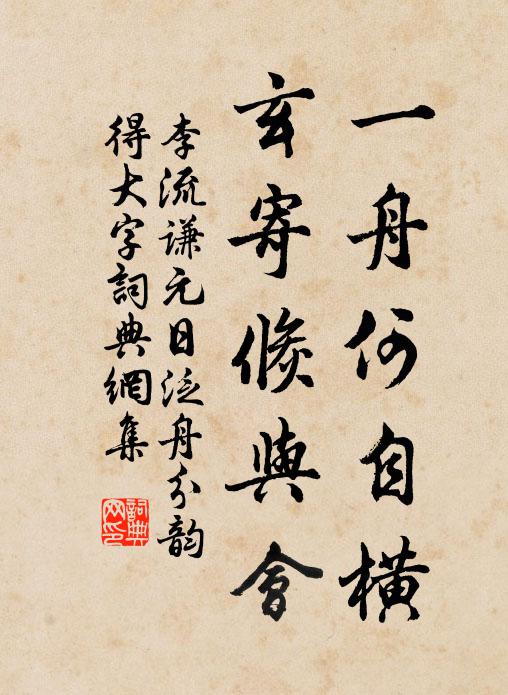 一舟何自横
玄寄倏與會
李流谦元日泛舟分韵
得大字詞典網集
詞典网印